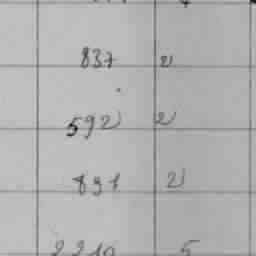 837 2
592 2
891 2
2210 5